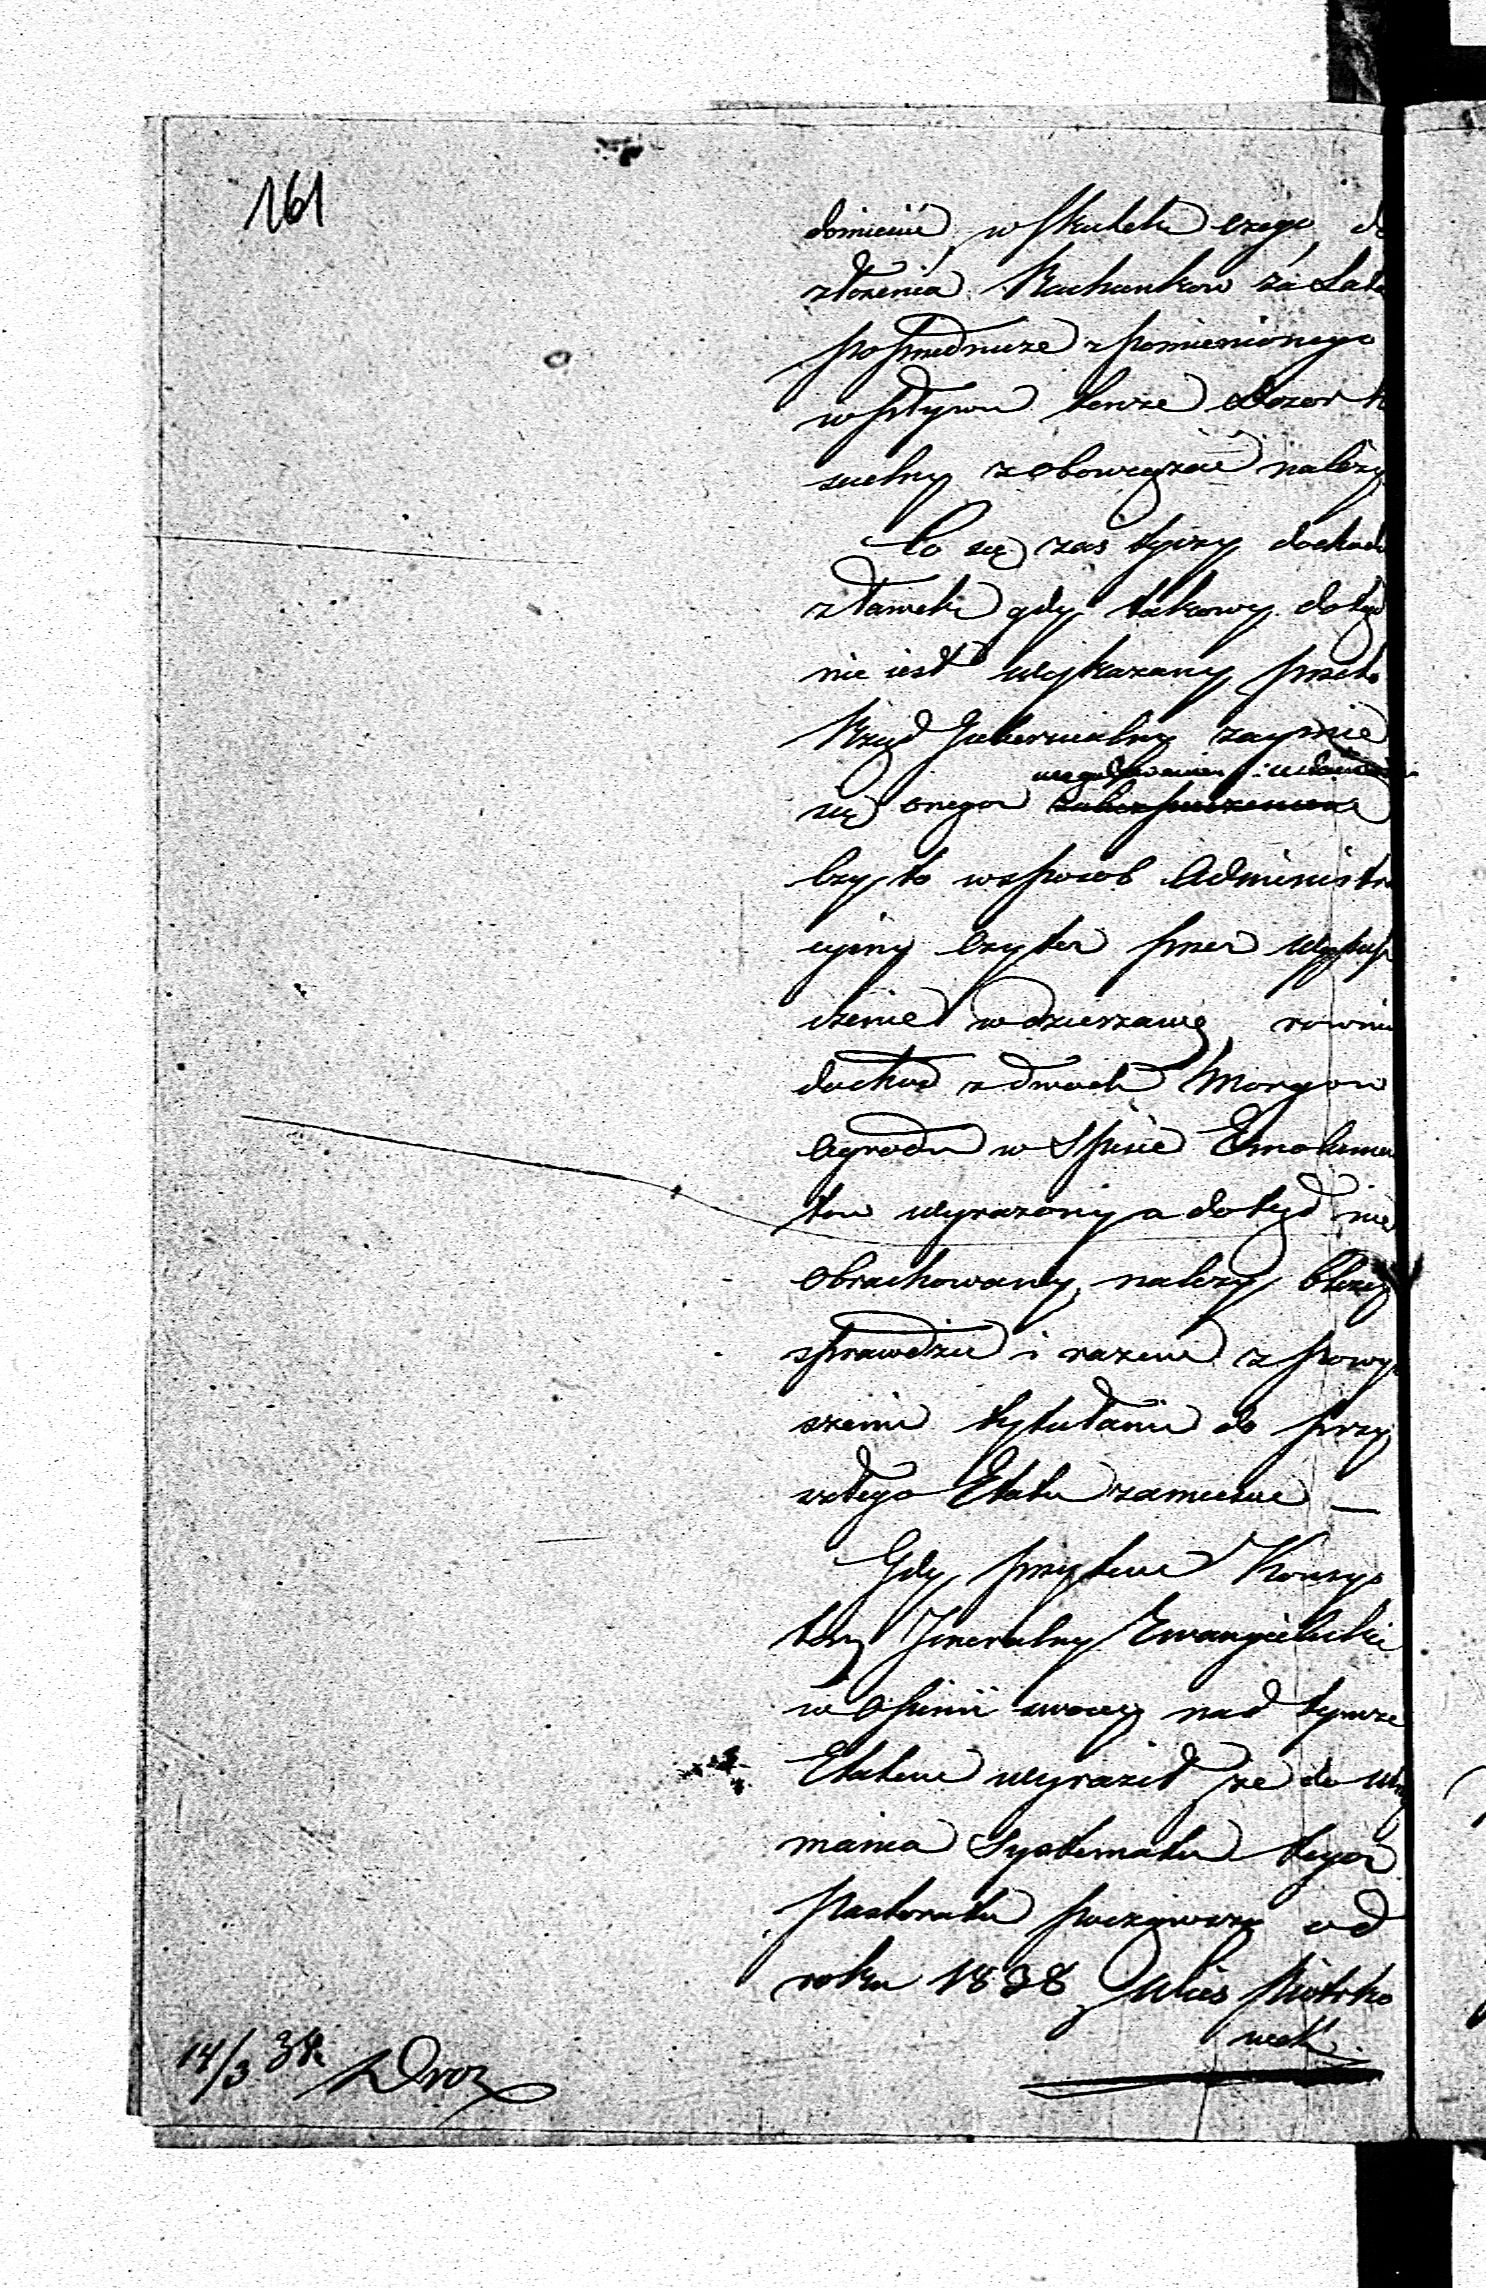 161
domienie, w skutek czego do
złożenia Rachunkow za Lata
poprzednicze z pomienionego
wpływu tenże Dozor K
scielny zobowięzać należy
Co się zas tyczy dochodu
z ławek gdy takowy dotąd
nie iest wykazany przeto
Rząd Gubernialny zaymie
się onego
czyto wsposob Administra
cyiny czyteż przez Wypusz
czenie wdzierzawę rownie
dochod z dwoch Morgow
Ogrodu w Spisie Emolumen
tow wyrazony a dotąd nie
obrachowany, należy bliżey
sprawdzić i razem z powy
szemi tytułami do przy
szłego Etatu zamieścić —
Gdy przytem Konsys
torz Jeneralny Ewangielicki
w Opinii swoiey nad tymże
Etatem wyraził że do utrzy
mania Systematu tegoż
Pastoratu począwszy od
roku 1838 Ulies Piotrko
wek
14/3 38 Droz